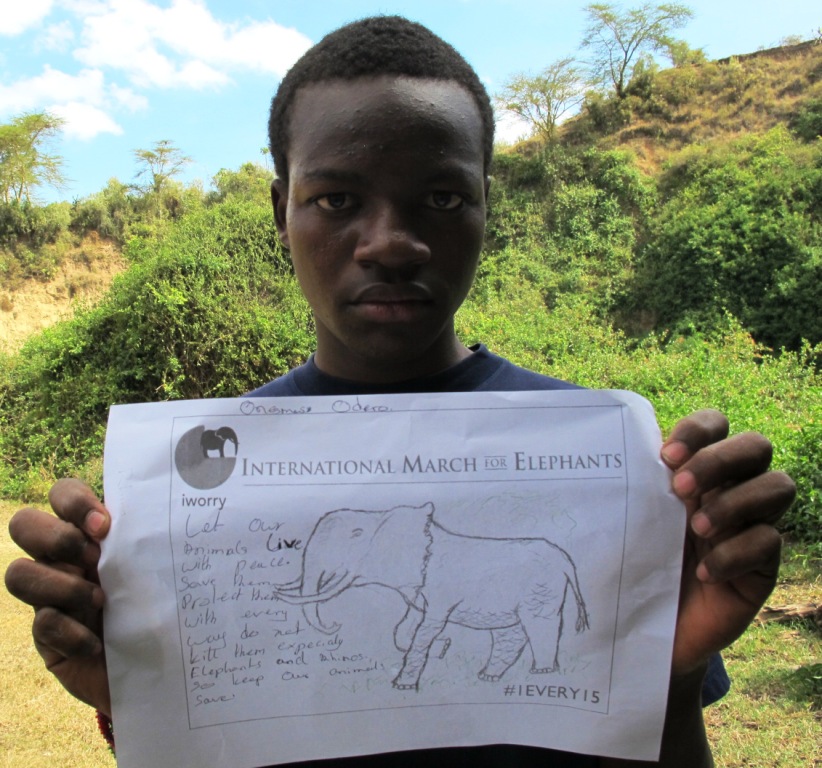 Onesmus Odero.
INTERNATIONAL MARCH FOR ELEPHANTS
iworry
Let Our
Animals Live
With peace.
Save them
Protect them
With every
way do not
kill them expecialy
Elephants and Rhinos.
Soo keep our animals
Save'
#1EVERY15